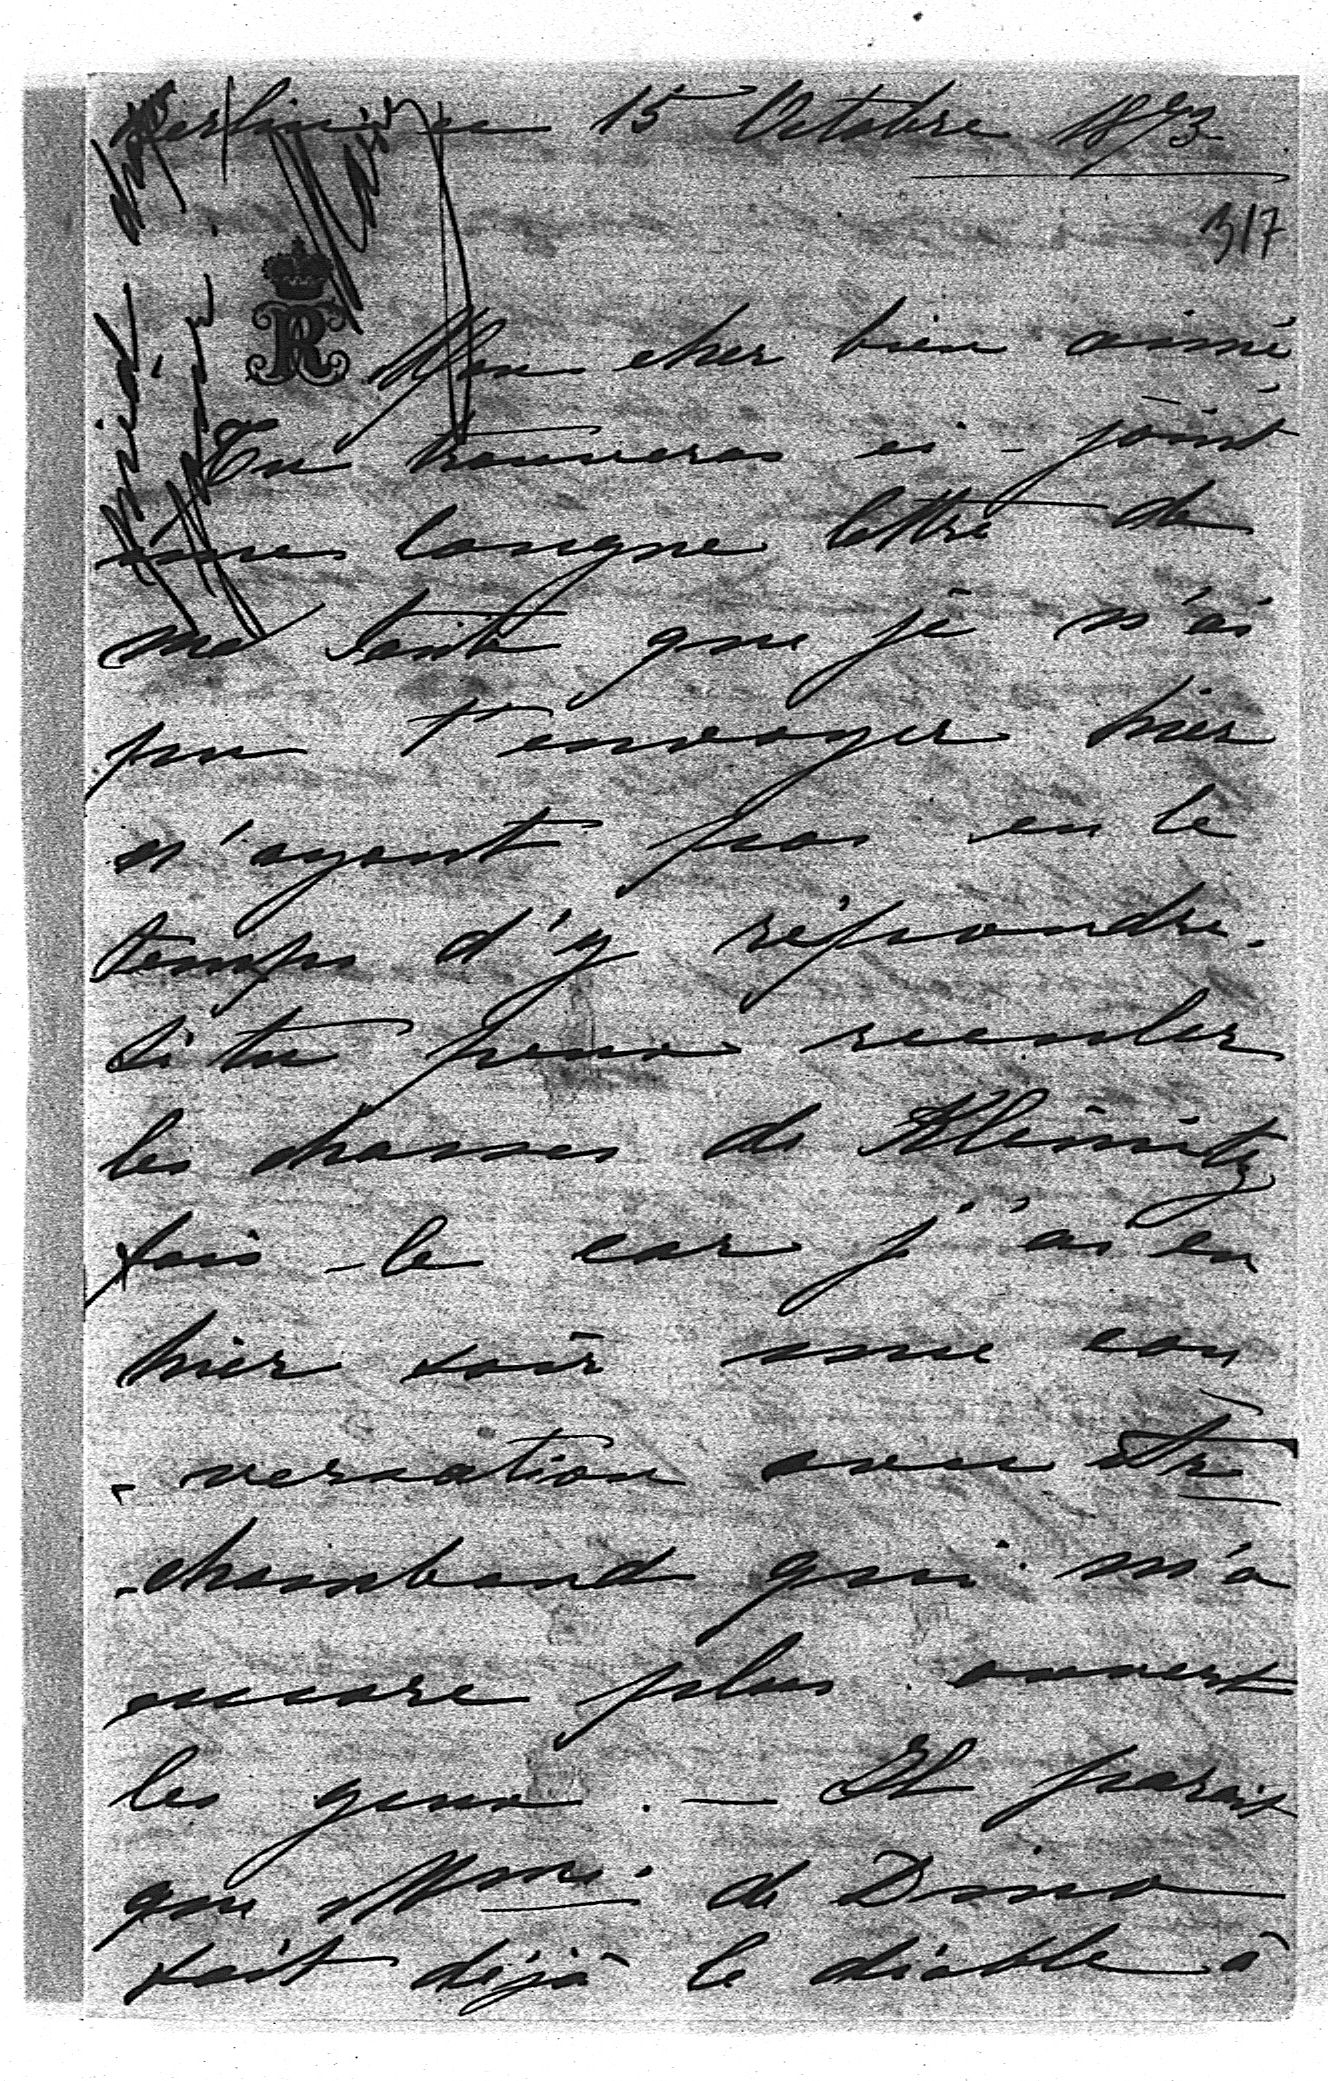 Berlin ce 15 Octobre 1873
317
R
Mon cher bien aimé
Tu trouveras ci-joint
une longue lettre de
ma tante que je n'ai
pu t'envoyer hier
n'ayant pas eu le
temps d'y répondre.
Si tu peux reculer
les chasses de Kleinitz
fais-le car j'ai eu
hier soir une con
-versation avec Mr
-chambaud qui m'a
encore plus ouvert
les yeux. — Il parait
que Mme. de Dino
fait déjà le diable à